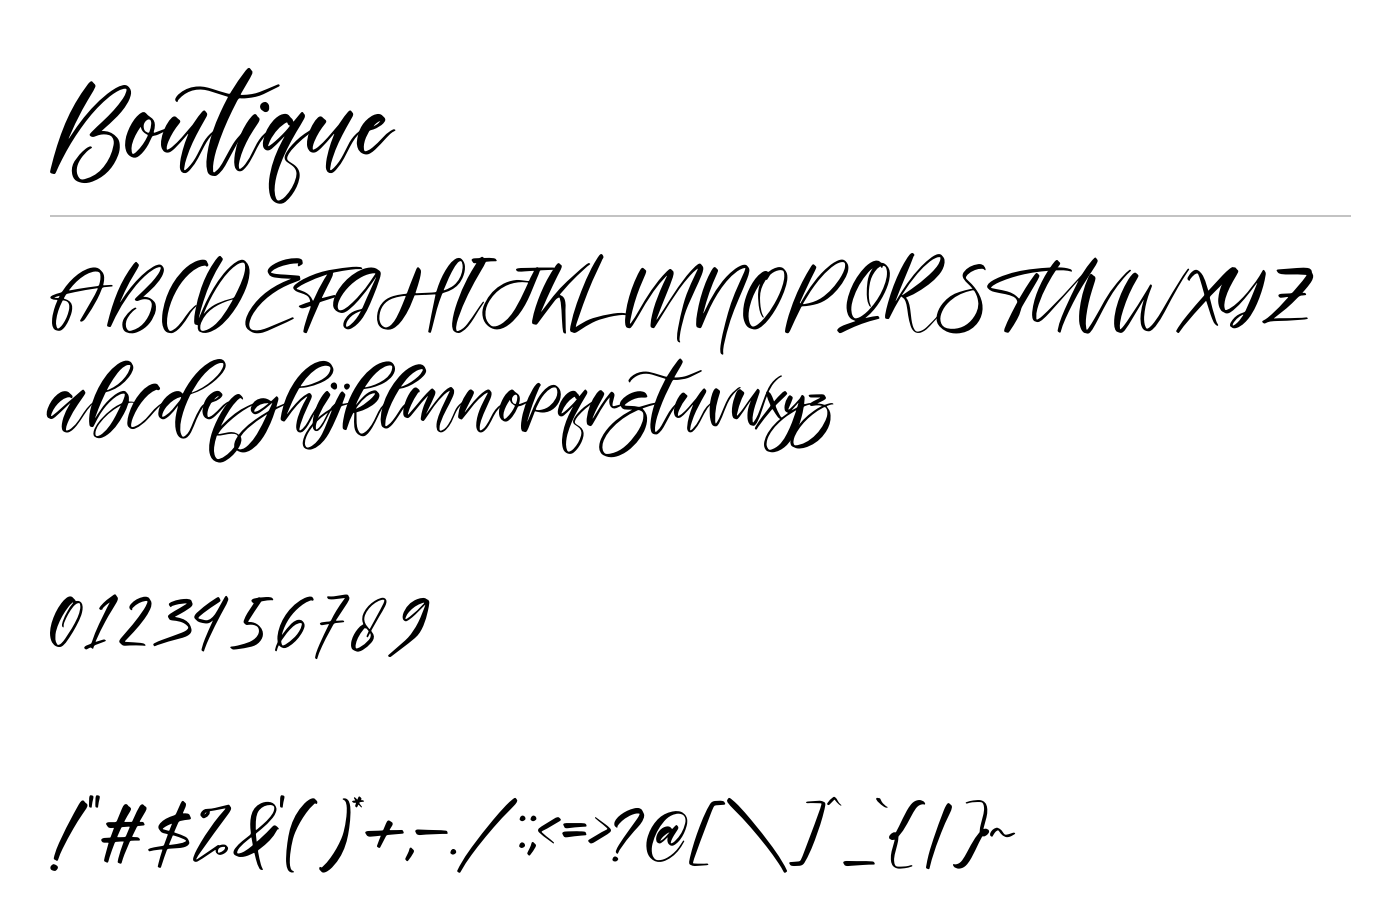 Boutique
ABCDEFGHIJKLMNOPQRSTUVWXYZ
abcdefghijklmnopqrstuvwxyz
0123456789
!"#$%&'()*+,-./:;<=>?@[\]^_`{|}~